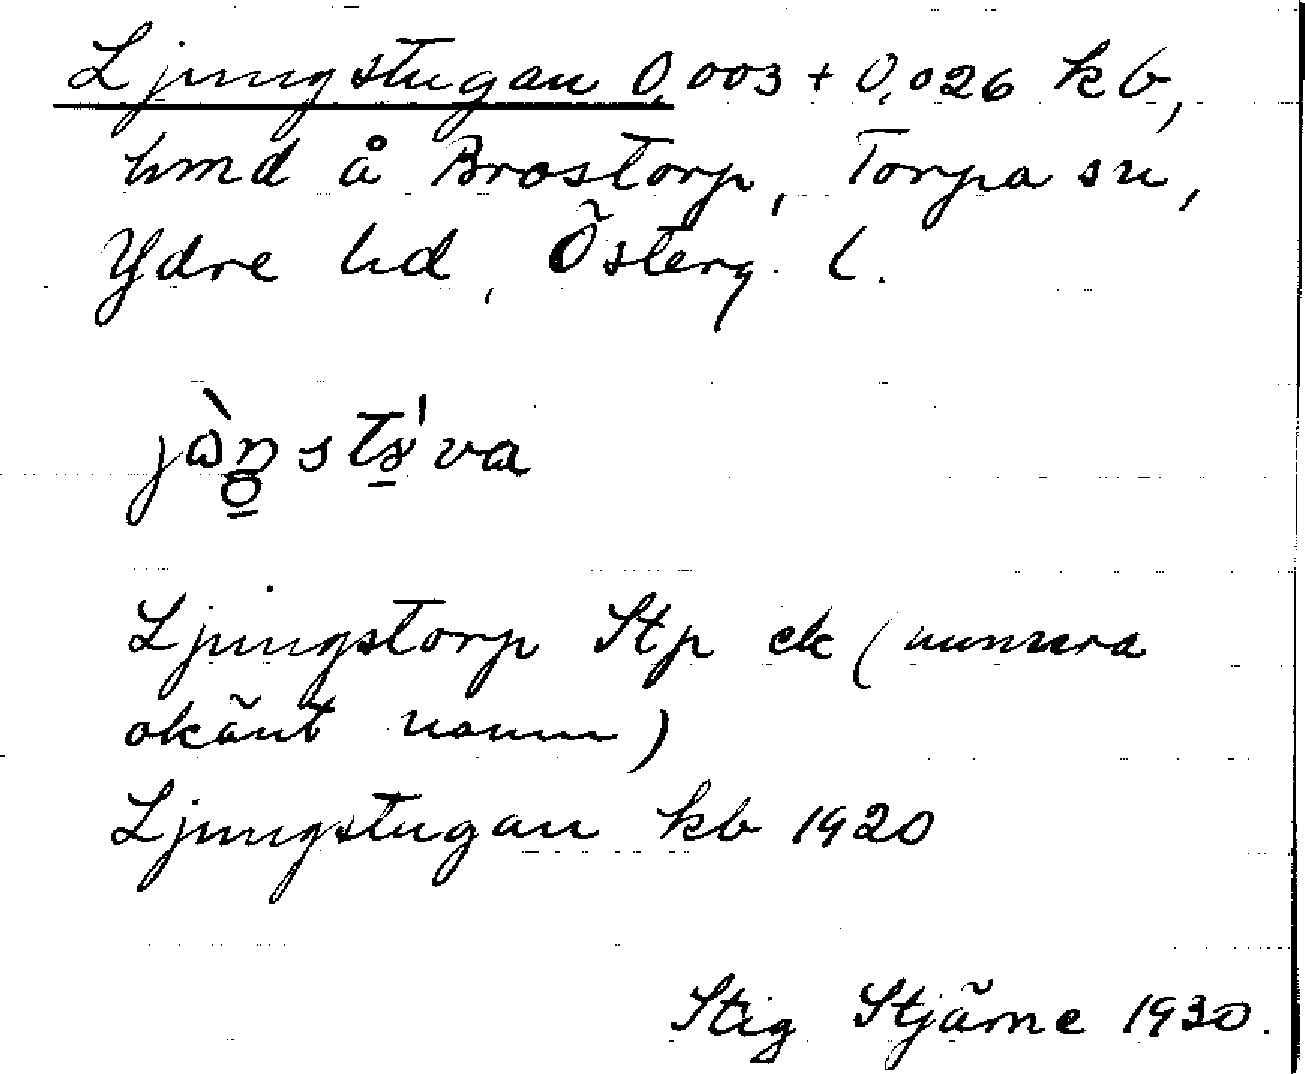 Ljungstugan 0,003 + 0,026 kb,
hmd å Brostorp, Torpa sn,
Ydre hd, Österg. l.
Ljungstorp Stp ek (numera
okänt namn)
Ljungstugan kb 1920
Stig Stjärne 1930.